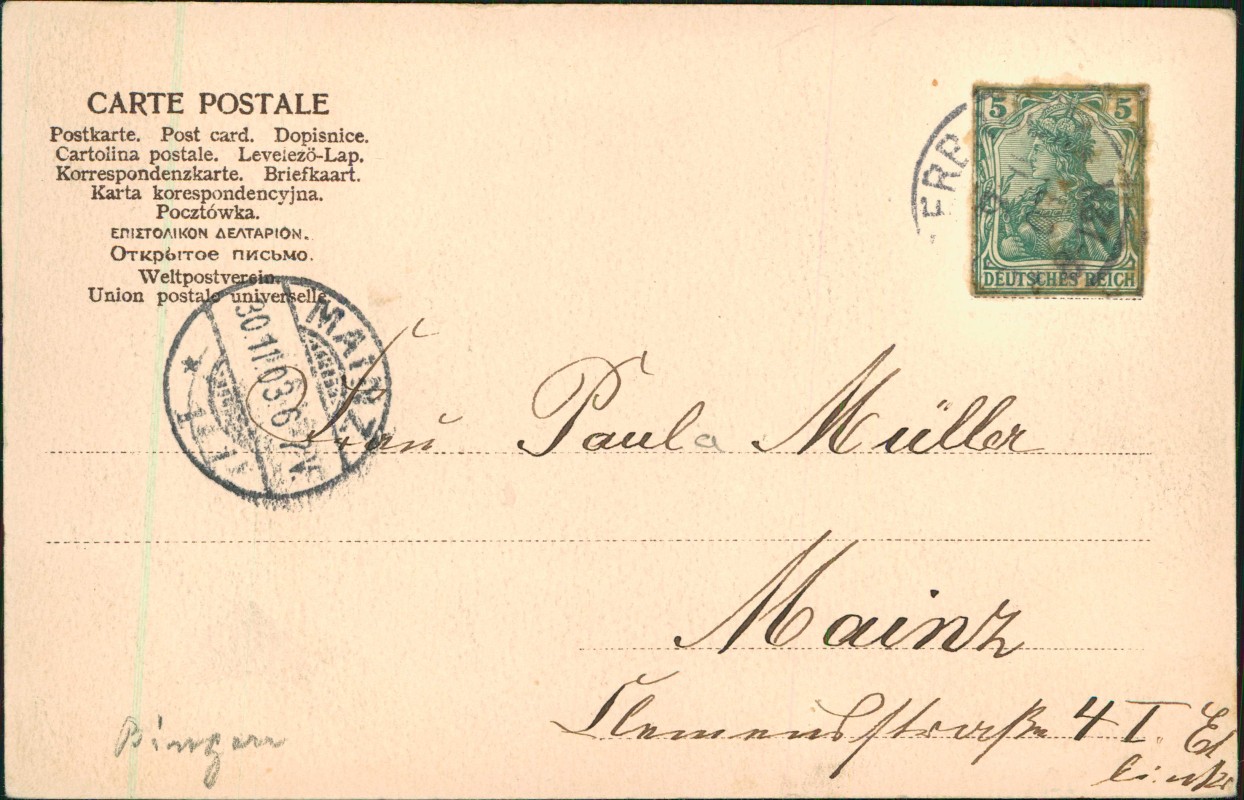 CARTE POSTALE
Postkarte. Post card. Dopisnice.
Cartolina postale. Levelező-Lap.
Korrespondenzkarte. Briefkaart.
Karta korespondencyjna.
Pocztówka.
ΕΠΙΣΤΟΛΙΚΟΝ ΔΕΛΤΑΡΙΟΝ.
Открытое письмо.
Weltpostverein.
Union postale universelle.
5 5
DEUTSCHES REICH
ERB
MAINZ
30.11.03.6-7N.
Frau Paula Müller
Mainz
Clemensstraße 4 I. Et
links
Bingen